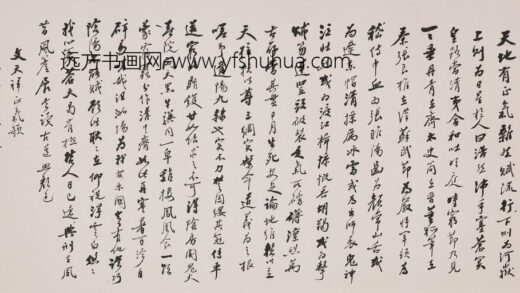 天地有正氣雜然賦流形下則為河嶽
上則為日星於人曰浩然沛乎塞蒼冥
皇路當清夷含和吐明庭時窮節乃見
一一垂丹青在齊太史簡在晉董狐筆在
秦張良椎在漢蘇武節為嚴將軍頭為
嵇侍中血為張睢陽齒為顏常山舌或
為遼東帽清操厲冰雪或為出師表鬼神
泣壯烈或為渡江楫慷慨吞胡羯或為擊
賊笏逆豎頭破裂是氣所磅礴凜烈萬
古存當其貫日月生死安足論地維賴以立
天柱賴以尊三綱實繫命道義為之根
嗟予遘陽九隸也實不力楚囚纓其冠傳車
送窮北鼎鑊甘如飴求之不可得陰房闃鬼火
春院閟天黑牛驥同一皁雞棲鳳凰食一朝
蒙霧露分作溝中瘠如此再寒暑百沴自
辟易哀哉沮洳場為我安樂國豈有他謬巧
陰陽不能賊顧此耿耿在仰視浮雲白悠悠
我心悲蒼天曷有極哲人日已遠典刑在夙
昔風簷展書讀古道照顏色
文天祥正氣歌
远方书画网 www.yfshuhua.com